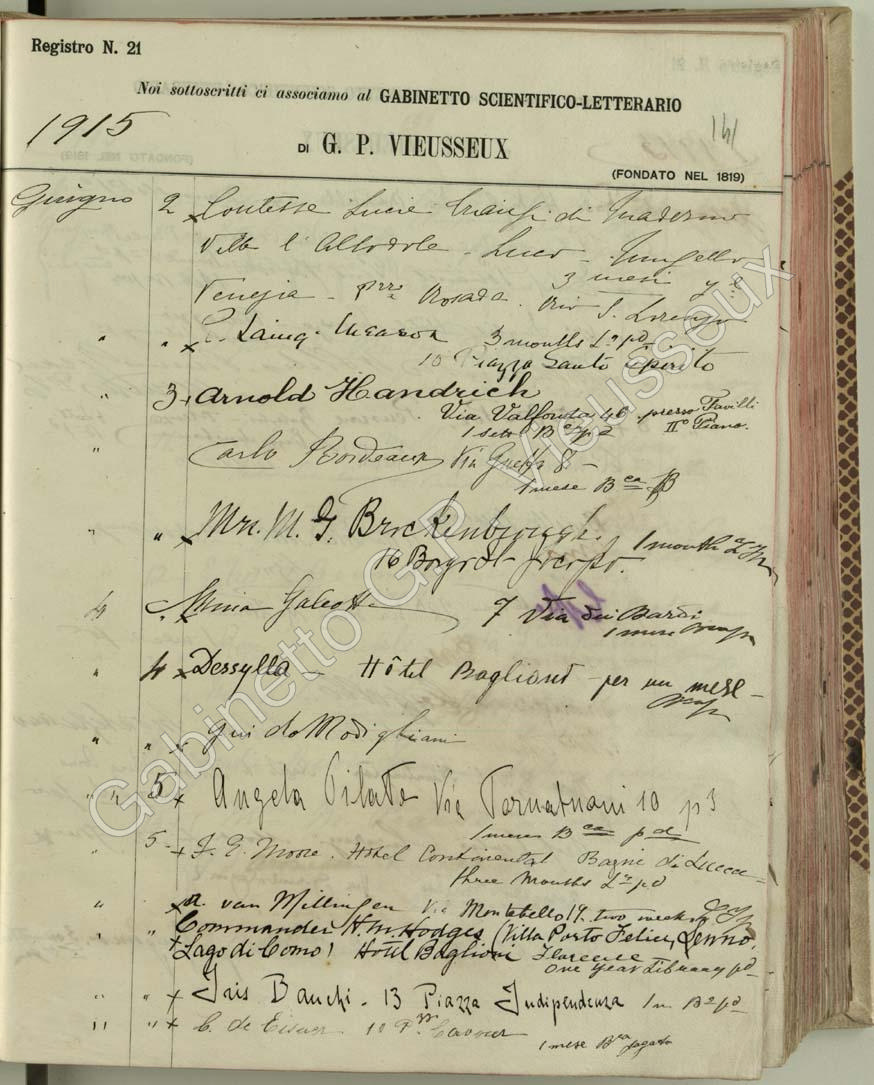 Registro N. 21
Noi sottoscritti ci associamo al GABINETTO SCIENTIFICO-LETTERARIO
1915
141
DI G. P. VIEUSSEUX
(FONDATO NEL 1819)
Giugno 2 x Contesse Lucie di Maderno
Villa l'Allodole - Luco - Mugello
3 mesi
Venezia - Rosada. Rio S. Lorenzo
" " x Laing Meason 3 months pd
10 Piazza Santo Spirito
" 3 x Arnold Handrich
Via Valfonda 46. presso Favilli
1 sett. Bca pd IIº Piano.
" Carlo Bordeaux Via Guelfa 8 -
1 mese Bca
" " x Mrs. M. G. Brockenbrough. 1 month
16 Borgo S. Jacopo.
4 " x Mina Galeotti 7 Via dei Bardi
1 mese
" 4 x Dessylla - Hôtel Baglioni - per un mese -
" " x Guido Modigliani
" " 5 x Angela Pilato Via Tornabuoni 10 p3
1 mese Bca pd
" 5 - x J. E. Moore. Hotel Continental Bagni di Lucca -
three Months pd
" x A. van Millingen Via Montebello 19. two weeks
" " Commander H. M. Hodges (Villa Porto Felice, Lenno,
x Lago di Como) Hotel Baglioni Florence
One Year Library pd
" " x Iris Banchi - 13 Piazza Indipendenza 1m Ba pd
" " x C. de 10 Pza Cavour
1 mese Bca pagato
Gabinetto G.P. Vieusseux